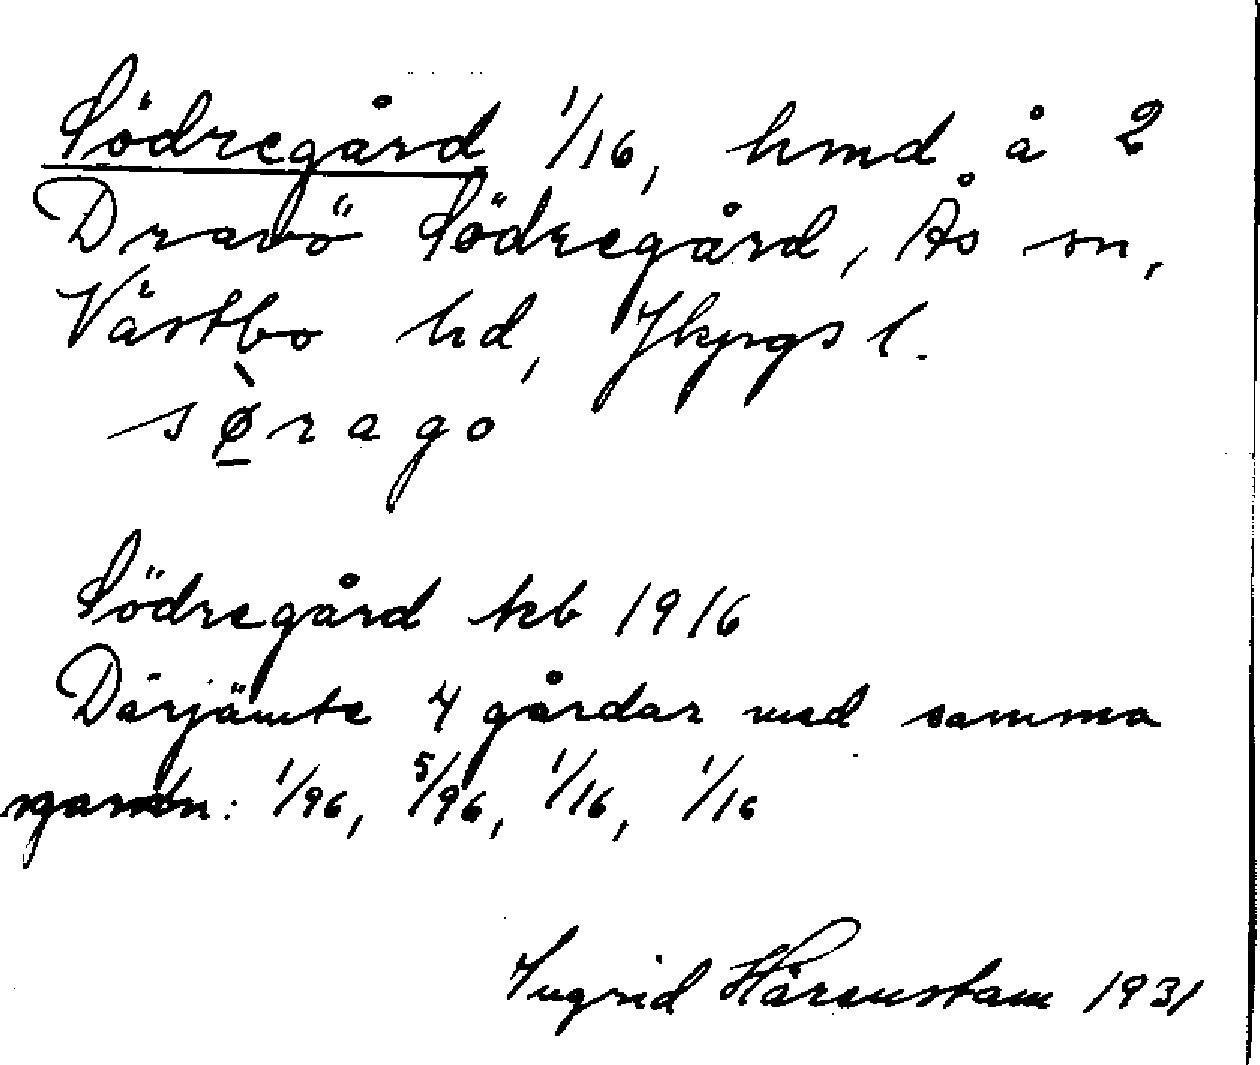 Södregård 1/16, hmd å 2
Dravö Södregård, Ås sn,
Västbo hd, Jkpgs l.
sø̱̀rago
Södregård kb 1916
Därjämte 4 gårdar med samma
: 1/96, 5/96, 1/16, 1/16
Ingrid Hårenstam 1931